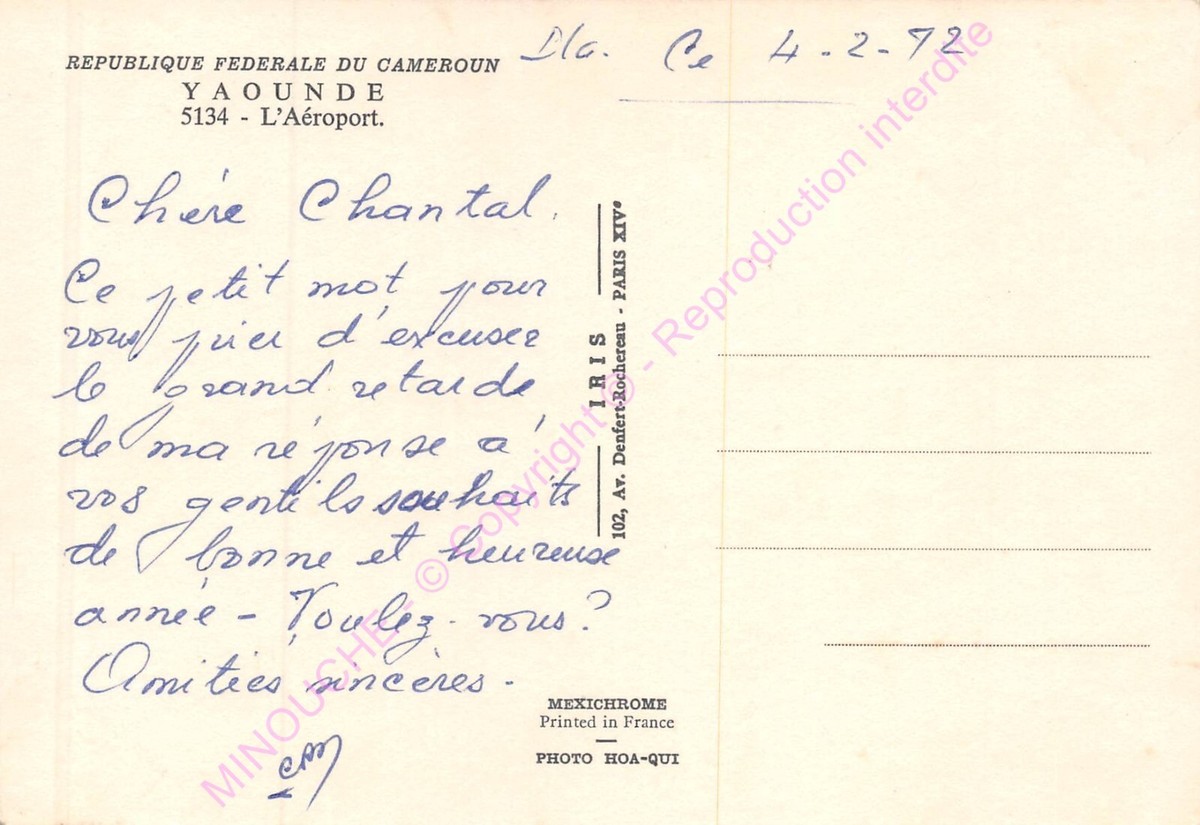 REPUBLIQUE FEDERALE DU CAMEROUN
YAOUNDE
5134 - L'Aéroport.
Dla. Ce 4-2-72
Chère Chantal.
Ce petit mot pour
vous prier d'excuser
le grand retarde
de ma réponse à
vos gentils souhaits
de bonne et heureuse
année - Voulez-vous?
Amitiés sincères.
IRIS
102, Av. Denfert-Rochereau - PARIS XIVe
MEXICHROME
Printed in France
PHOTO HOA-QUI
MINOUCHE - © Copyright © - Reproduction interdite